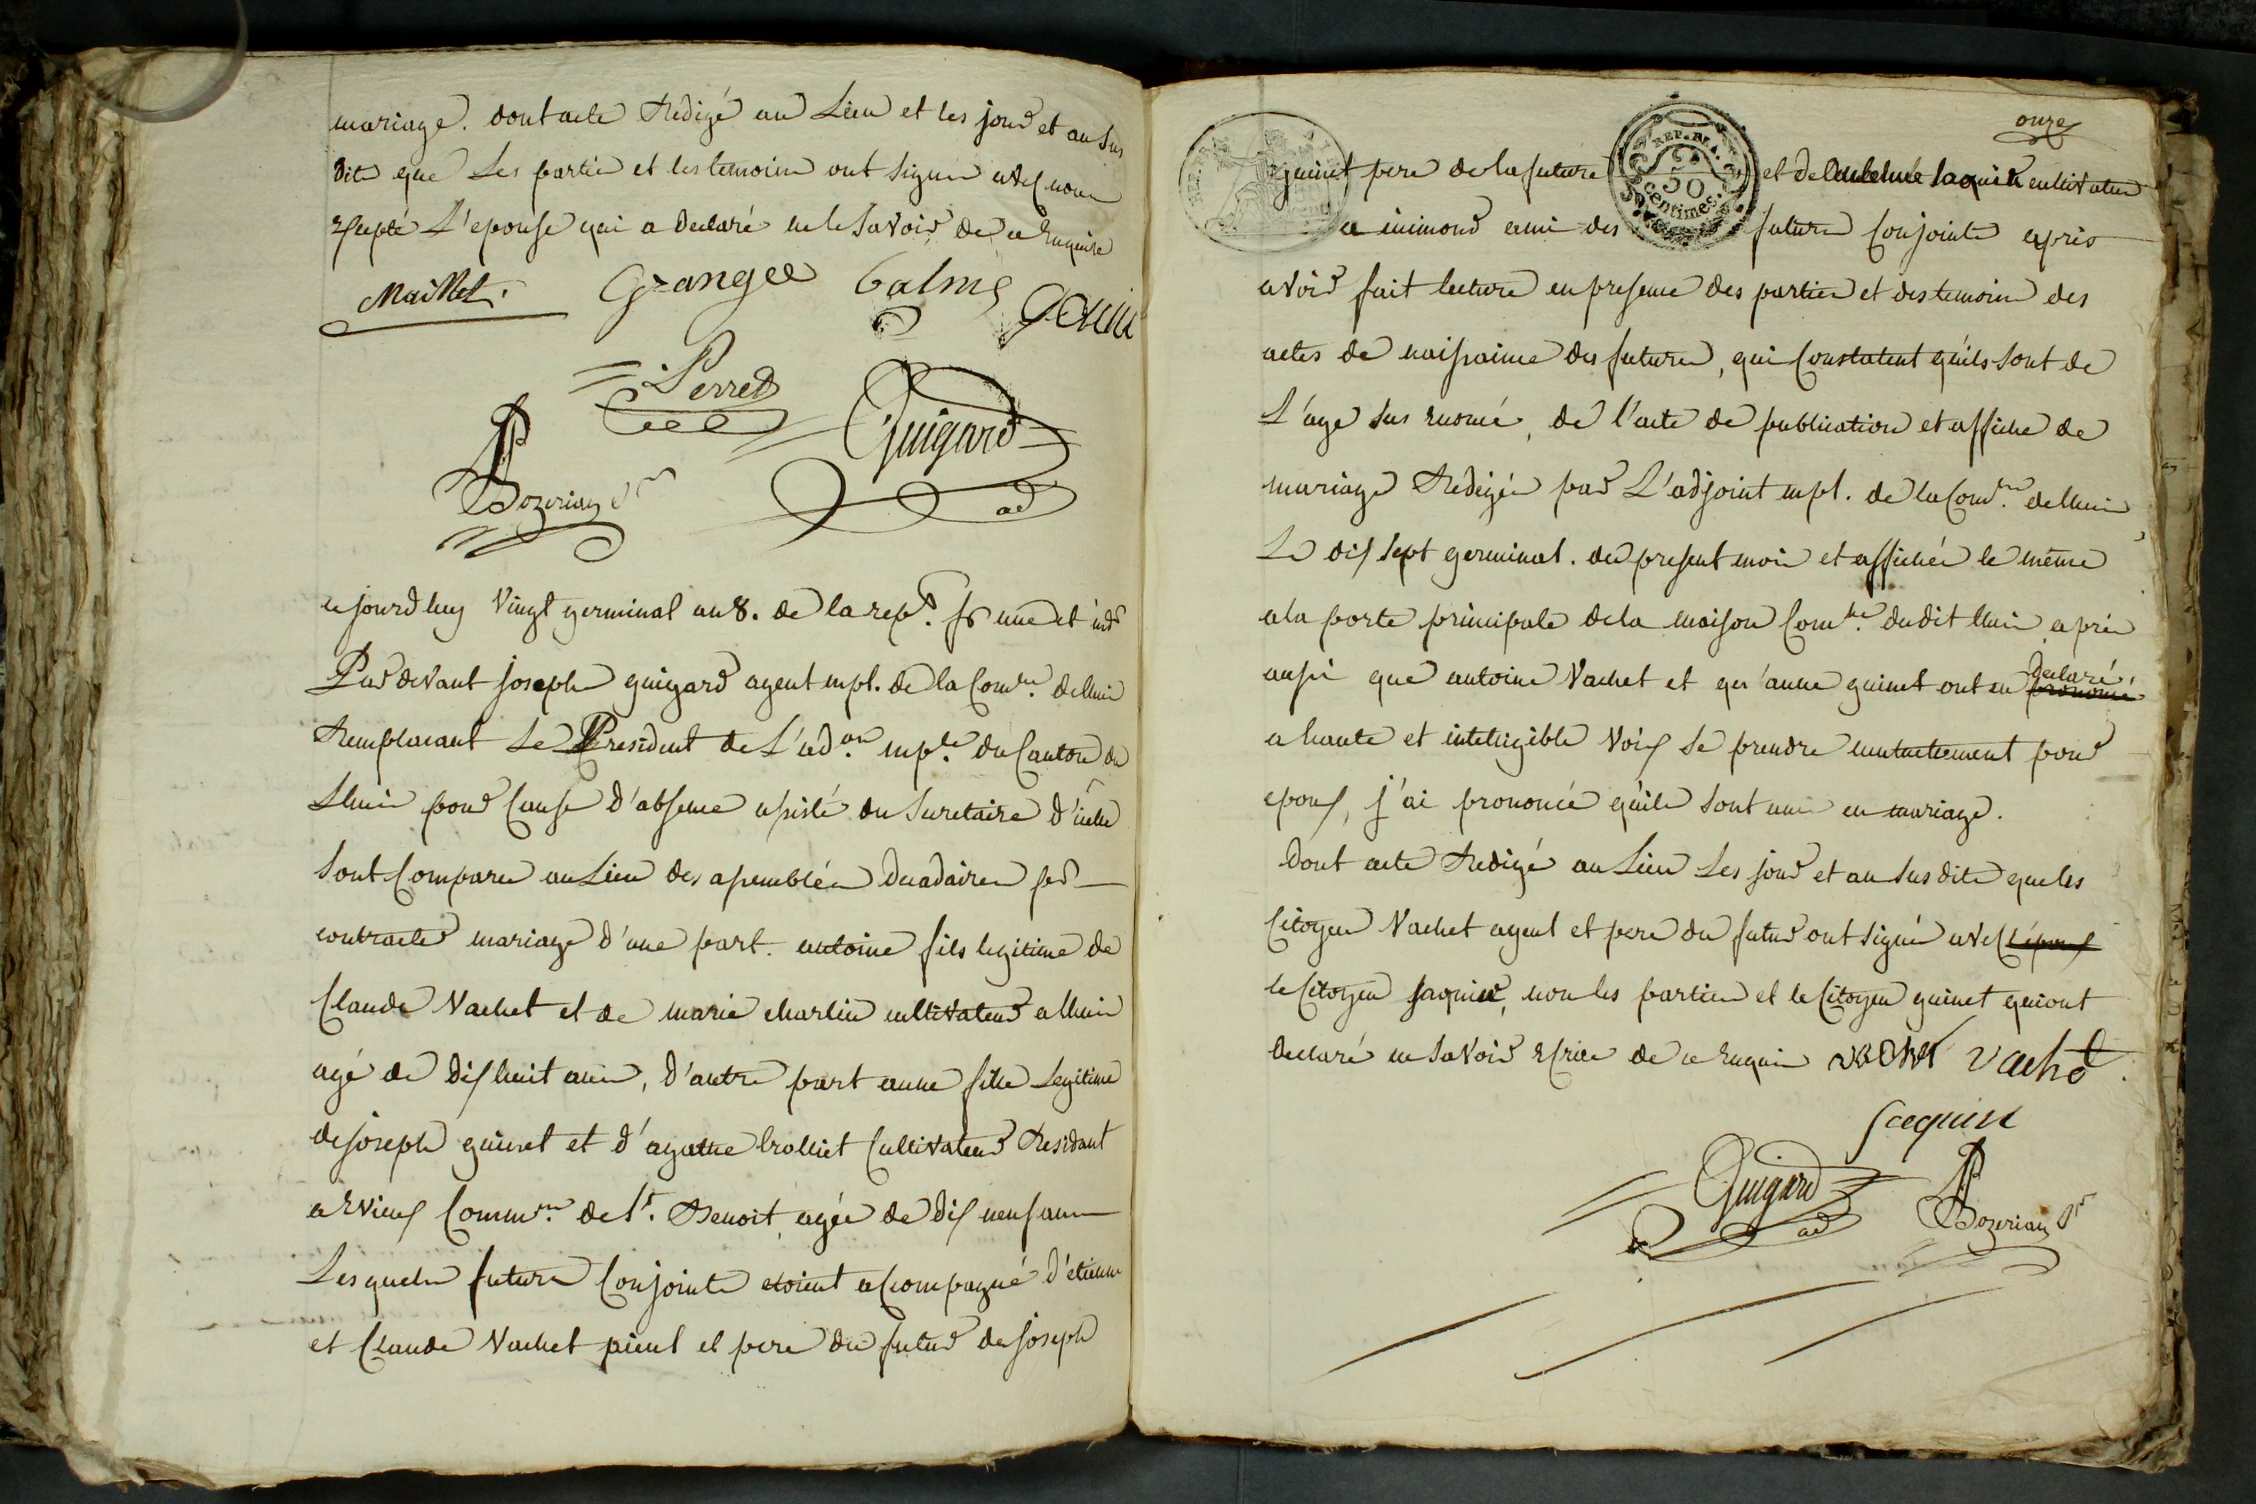 mariage. dont acte Redigé au Lieu et les jour et an sus
dits que Les partie et les temoins ont signés avec nous
Excepté L'epouse qui a declaré ne le savoir de ce Enquise
Maillet. Grangee Calmé
Perret
Guigard
ad
Bozerian Sre
ce jourd huy vingt germinal an 8. de la rep. fr une et ind
Par devant joseph guigard agent mpl. de la Comne. de lhuis
Remplacant Le President de L'adon. mple. du Canton de
Lhuis pour Cause d'absence assisté du Secretaire d'icelle
sont Comparu au Lieu des assemblées decadaires pour
contracter mariage d'une part. antoine fils legitime de
Claude Vachet et de marie charlin cultivateur a lhuis
agé de dix huit ans, d'autre part anne fille Legitime
de joseph guinet et d'agathe trolliet Cultivateur Residant
a Evieux Commne. de St. Benoit, agée de dix neuf ans
Les quels futurs Conjoints etoient accompagné d'etienne
et Claude Vachet aieul et pere du futur de joseph
onze
REP. FRA.
50
Centimes
guinet pere de la future et de jaquin cultivateur
a inimond ami des futurs Conjoints apres
avoir fait lecture en presence des parties et des temoins des
actes de naissance des futurs, qui Constatent quils sont de
L'age sus enoncé, de l'acte de publication et affiche de
mariage Redigée par L'adjoint mpl. de la Comne. de lhuis
Le dix sept germinal. du present mois et affichée le même
a la porte principale de la maison Comne. dudit lhuis apres
aussi que antoine Vachet et qu'anne guinet ont eu prononcé declaré
a haute et inteligible voix se prendre mutuellement pour
epoux, j'ai prononcé quils sont unis en mariage.
Dont acte Redigé au Lieu Les jour et an sus dits que les
Citoyen Vachet ayeul et pere du futur ont signés avec L'époux
le Citoyen jaquin, non les parties et le Citoyen guinet qui ont
declaré ne savoir Ecrire de ce Enquis vachet vachet
jaquin
Guigard
ad
Bozerian Sre